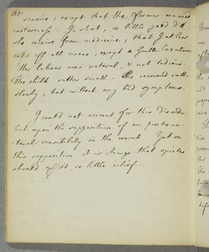 service, except that the former
costiveness. In short, so little good did
she receive from medicine, that I at last
left off all means, except a Gentle Laxative
The labour was natural, & not tedious
The child rather small. She recovered rather
slowly, but without any bad symptoms.
I could not account for this disorder,
but upon the supposition of an preterna-
tural sensibility in the womb. Yet on
this supposition it is strange that opiates
should afford so little relief.